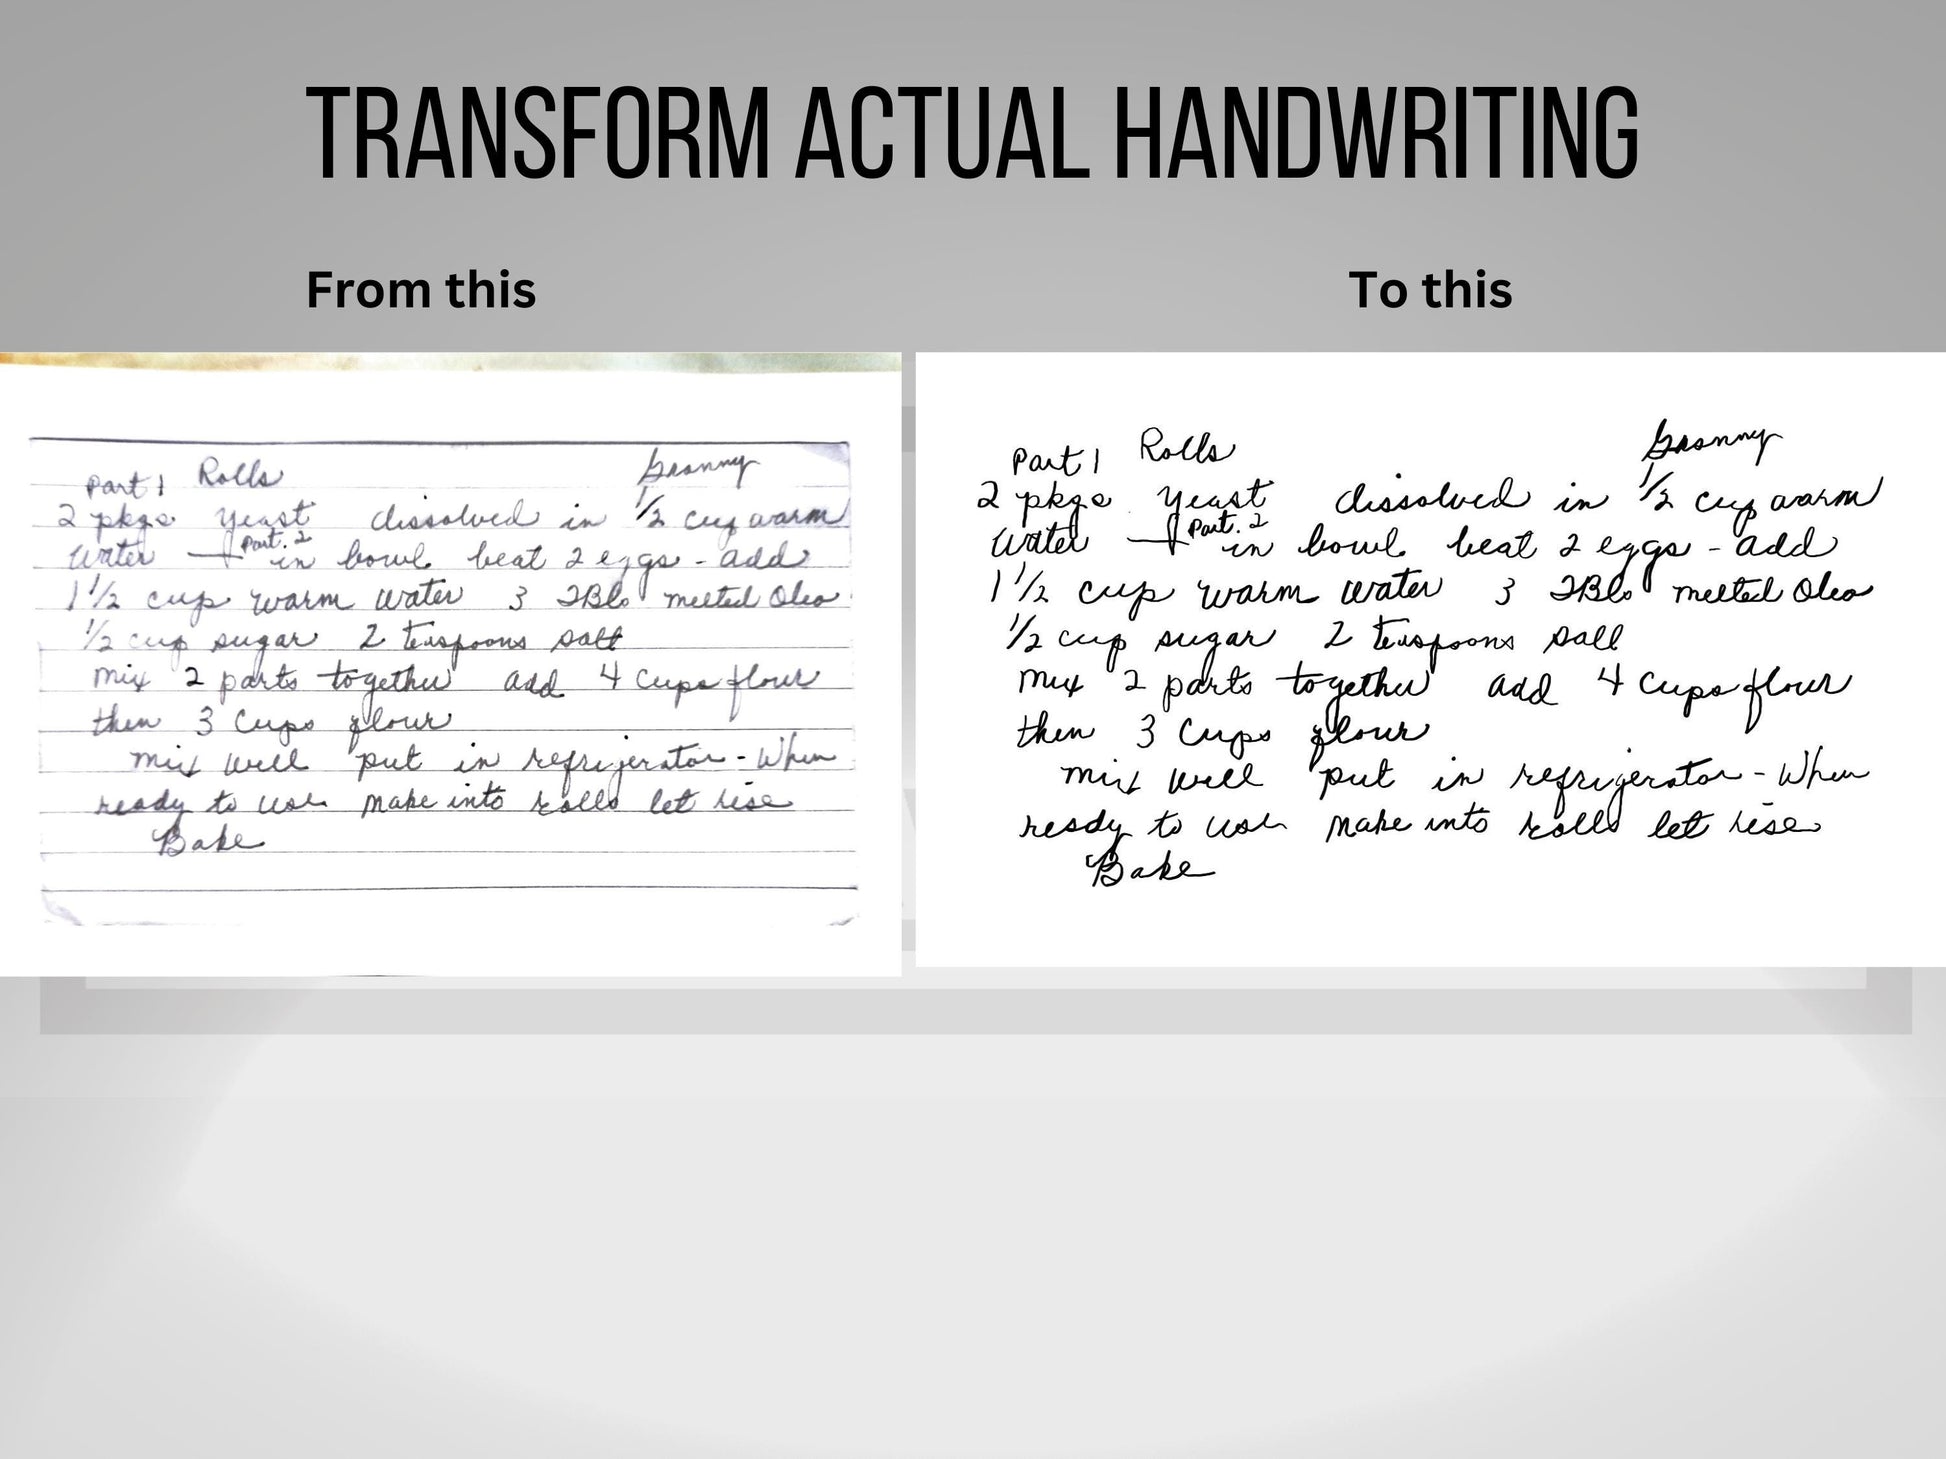 TRANSFORM ACTUAL HANDWRITING
From this
To this
Part 1 Rolls Granny
2 pkgs yeast dissolved in 1/2 cup warm
water Part. 2 in bowl beat 2 eggs - add
1 1/2 cup warm water 3 TBls melted Oleo
1/2 cup sugar 2 teaspoons salt
mix 2 parts together add 4 cups flour
then 3 cups flour
mix well put in refrigerator - When
ready to use make into rolls let rise
Bake
Part 1 Rolls Granny
2 pkgs yeast dissolved in 1/2 cup warm
water Part. 2 in bowl beat 2 eggs - add
1 1/2 cup warm water 3 TBls melted Oleo
1/2 cup sugar 2 teaspoons salt
mix 2 parts together add 4 cups flour
then 3 cups flour
mix well put in refrigerator - When
ready to use make into rolls let rise
Bake